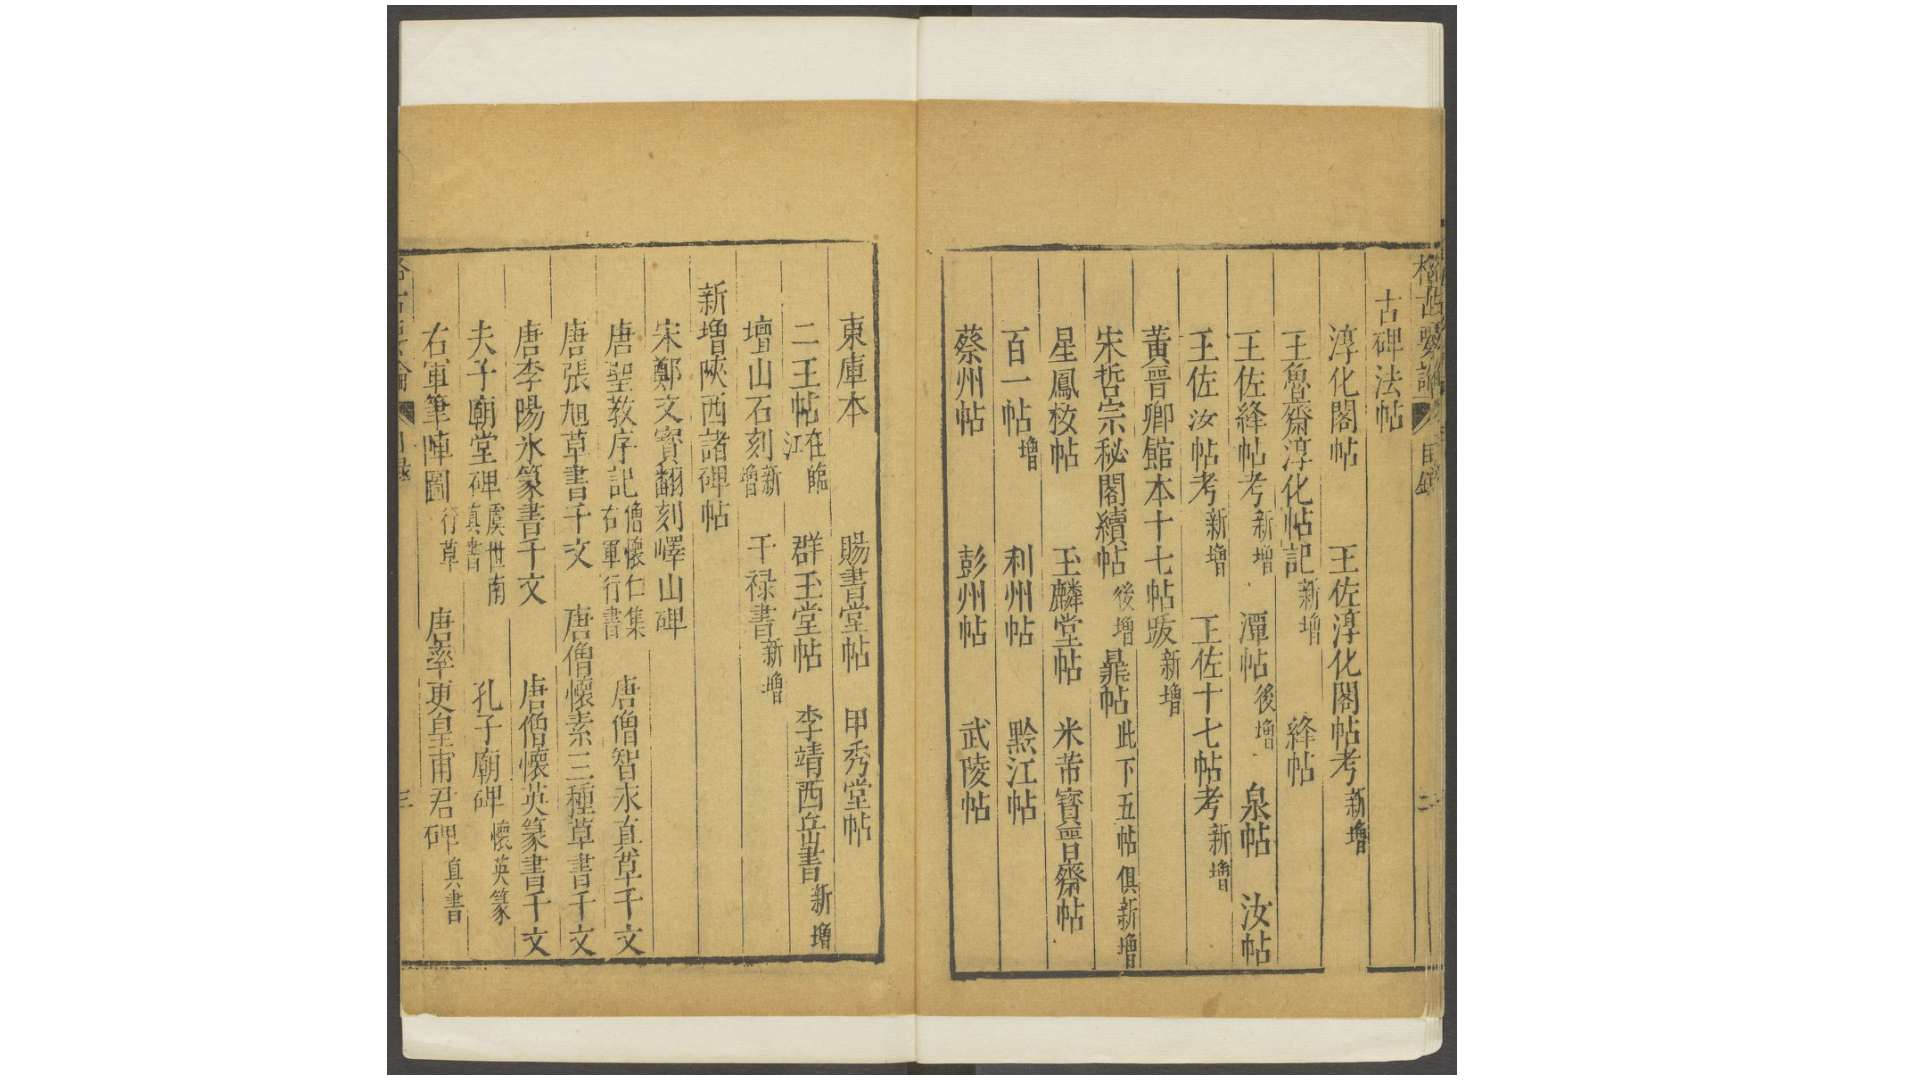 格古要論 目錄 二
古碑法帖
淳化閣帖 王佐淳化閣帖考新增
王魯齋淳化帖記新增 絳帖
王佐絳帖考新增 潭帖後增 泉帖 汝帖
王佐汝帖考新增 王佐十七帖考新增
黃晉卿館本十七帖跋新增
宋哲宗秘閣續帖後增 㬥帖此下五帖俱新增
星鳳樓帖 玉麟堂帖 米芾寳晉齋帖
百一帖增 利州帖 黔江帖
蔡州帖 彭州帖 武陵帖
東庫本 賜書堂帖 甲秀堂帖
二王帖在臨江 群玉堂帖 李靖西岳書新增
壇山石刻新增 干祿書新增
新增陝西諸碑帖
宋鄭文寳翻刻嶧山碑
唐聖教序記僧懷仁集右軍行書 唐僧智永真草千文
唐張旭草書千文 唐僧懷素三種草書千文
唐李陽氷篆書千文 唐僧懷英篆書千文
夫子廟堂碑虞世南真書 孔子廟碑懷英篆
右軍筆陣圖行草 唐率更皇甫君碑真書
格古要論 目錄 三